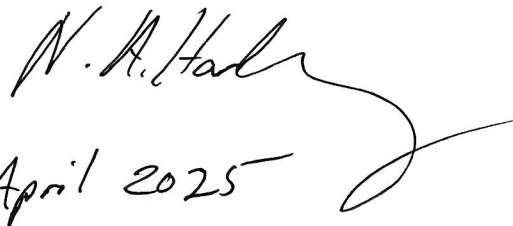 N. A. Hardy
April 2025